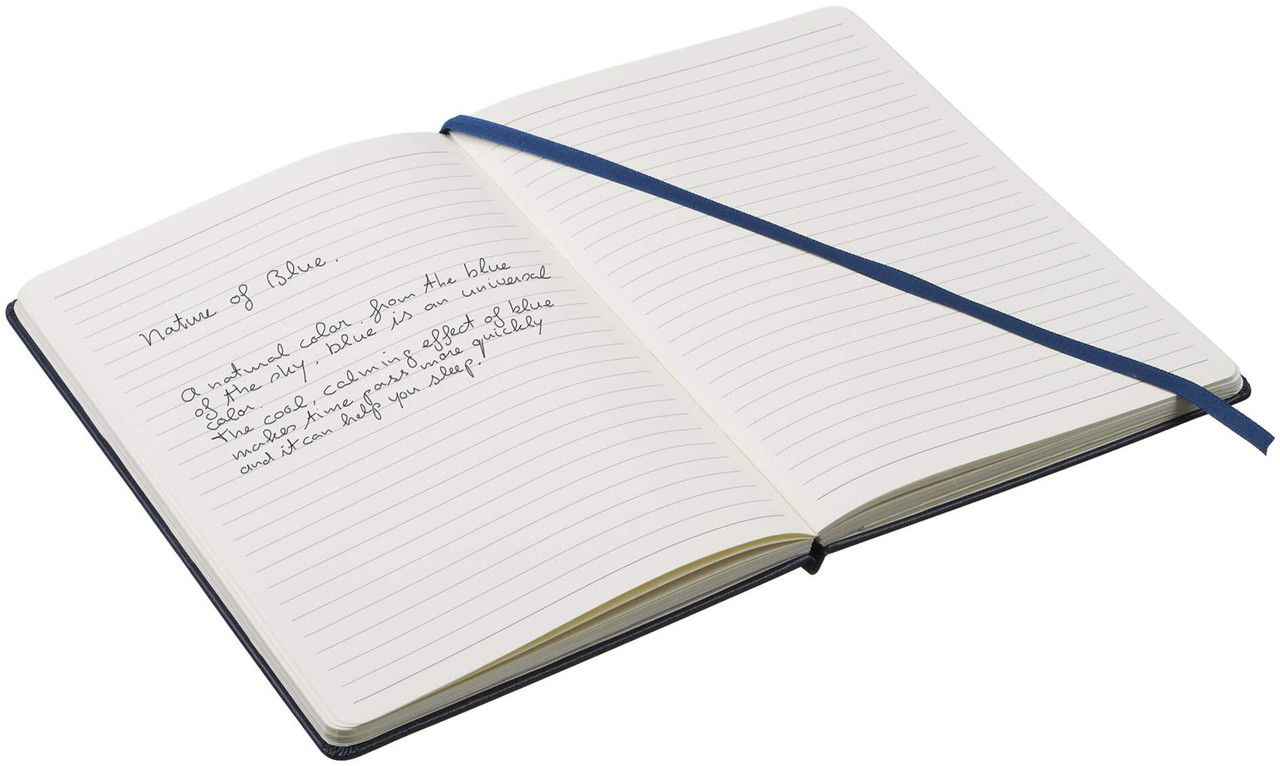 Nature of Blue.
A natural color, from the blue
of the sky, blue is an universal
color
The cool, calming effect of blue
makes time pass more quickly
and it can help you sleep!